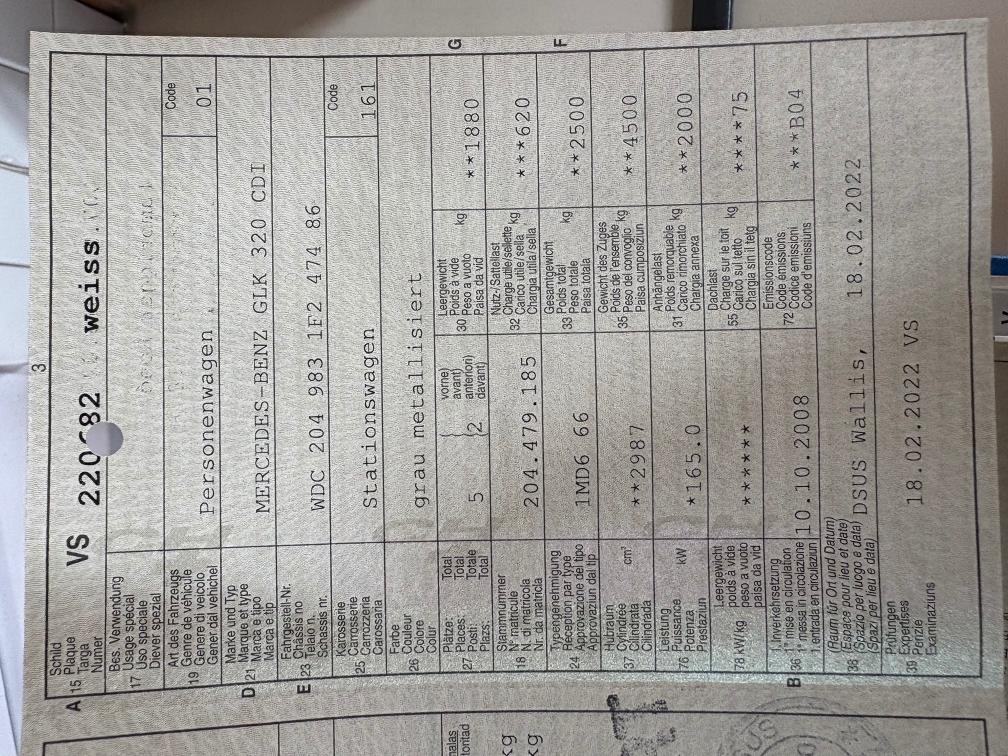 3
A 15 Schild
Plaque
Targa
Numer
VS 220682 weiss
Bes. Verwendung
17 Usage spécial
Uso speciale
Diever spezial
Art des Fahrzeugs
Genre de véhicule
19 Genere di veicolo
Gener dal vehichel
Personenwagen
Code
01
Marke und Typ
D 21 Marque et type
Marca e tipo
Marca e tip
MERCEDES-BENZ GLK 320 CDI
Fahrgestell-Nr.
E 23 Chassis no
Telaio n.
Chassis nr.
WDC 204 983 1F2 474 86
Karosserie
25 Carrosserie
Carrozzeria
Carossaria
Stationswagen
Code
161
Farbe
26 Couleur
Colore
Colur
grau metallisiert
Plätze: Total
27 Places: Total
Posti: Totale
Plazs: Total
5
2
vorne)
avant)
anteriori)
davant)
Leergewicht
30 Poids à vide kg
Peso a vuoto
Paisa da vid
**1880
G
Stammnummer
18 N° matricule
N. di matricola
Nr. da matricla
204.479.185
Nutz-/Sattellast
32 Charge utile/sellette kg
Carico utile/sella
Chargia utila/sella
***620
Typengenehmigung
24 Réception par type
Approvazione del tipo
Approvaziun dal tip
1MD6 66
Gesamtgewicht
33 Poids total kg
Peso totale
Paisa totala
**2500
F
Hubraum
37 Cylindrée cm³
Cilindrata
Cilindrada
**2987
Gewicht des Zuges
35 Poids de l'ensemble kg
Peso del convoglio
Paisa cumposiziun
**4500
Leistung
76 Puissance kW
Potenza
Prestaziun
*165.0
Anhängelast
31 Poids remorquable kg
Carico rimorchiato
Chargia annexa
**2000
Leergewicht
78 kW/kg poids à vide
peso a vuoto
paisa da vid
******
Dachlast
55 Charge sur le toit kg
Carico sul tetto
Chargia sin il tetg
****75
1. Inverkehrsetzung
B 36 1re mise en circulation
1a messa in circolazione
1. entrada en circulaziun
10.10.2008
Emissionscode
72 Code émissions
Codice emissioni
Code d'emissiuns
***B04
(Raum für Ort und Datum)
38 (Espace pour lieu et date)
(Spazio per luogo e data)
(Spazi per lieu e data)
DSUS Wallis, 18.02.2022
Prüfungen
39 Expertises
Perizie
Examinaziuns
18.02.2022 VS
kg
kg